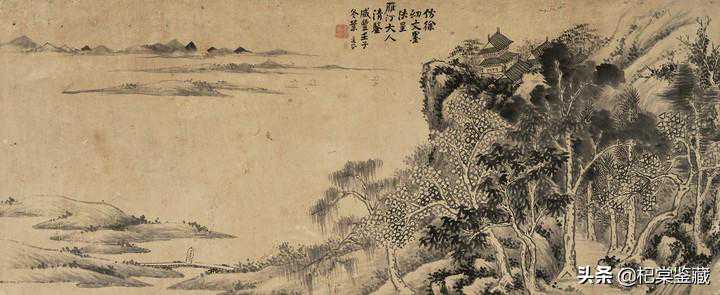 仿徐
幼文墨
法呈
雁汀大人
清鑒
咸豐壬子
冬葉
头条 @杞棠鉴藏